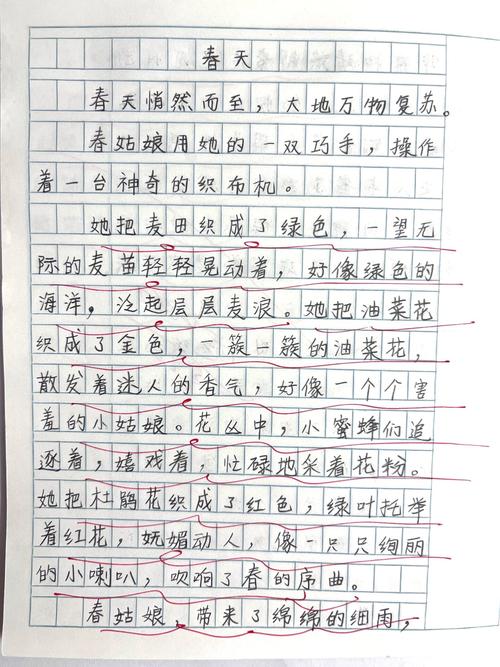 春天
春天悄然而至，大地万物复苏。
春姑娘用她的一双巧手，操作
着一台神奇的织布机。
她把麦田织成了绿色，一望无
际的麦苗轻轻晃动着，好像绿色的
海洋，泛起层层麦浪。她把油菜花
织成了金色，一簇一簇的油菜花，
散发着迷人的香气，好像一个个害
羞的小姑娘。花丛中，小蜜蜂们追
逐着，嬉戏着，忙碌地采着花粉。
她把杜鹃花织成了红色，绿叶托举
着红花，妩媚动人，像一只只绚丽
的小喇叭，吹响了春的序曲。
春姑娘，带来了绵绵的细雨，